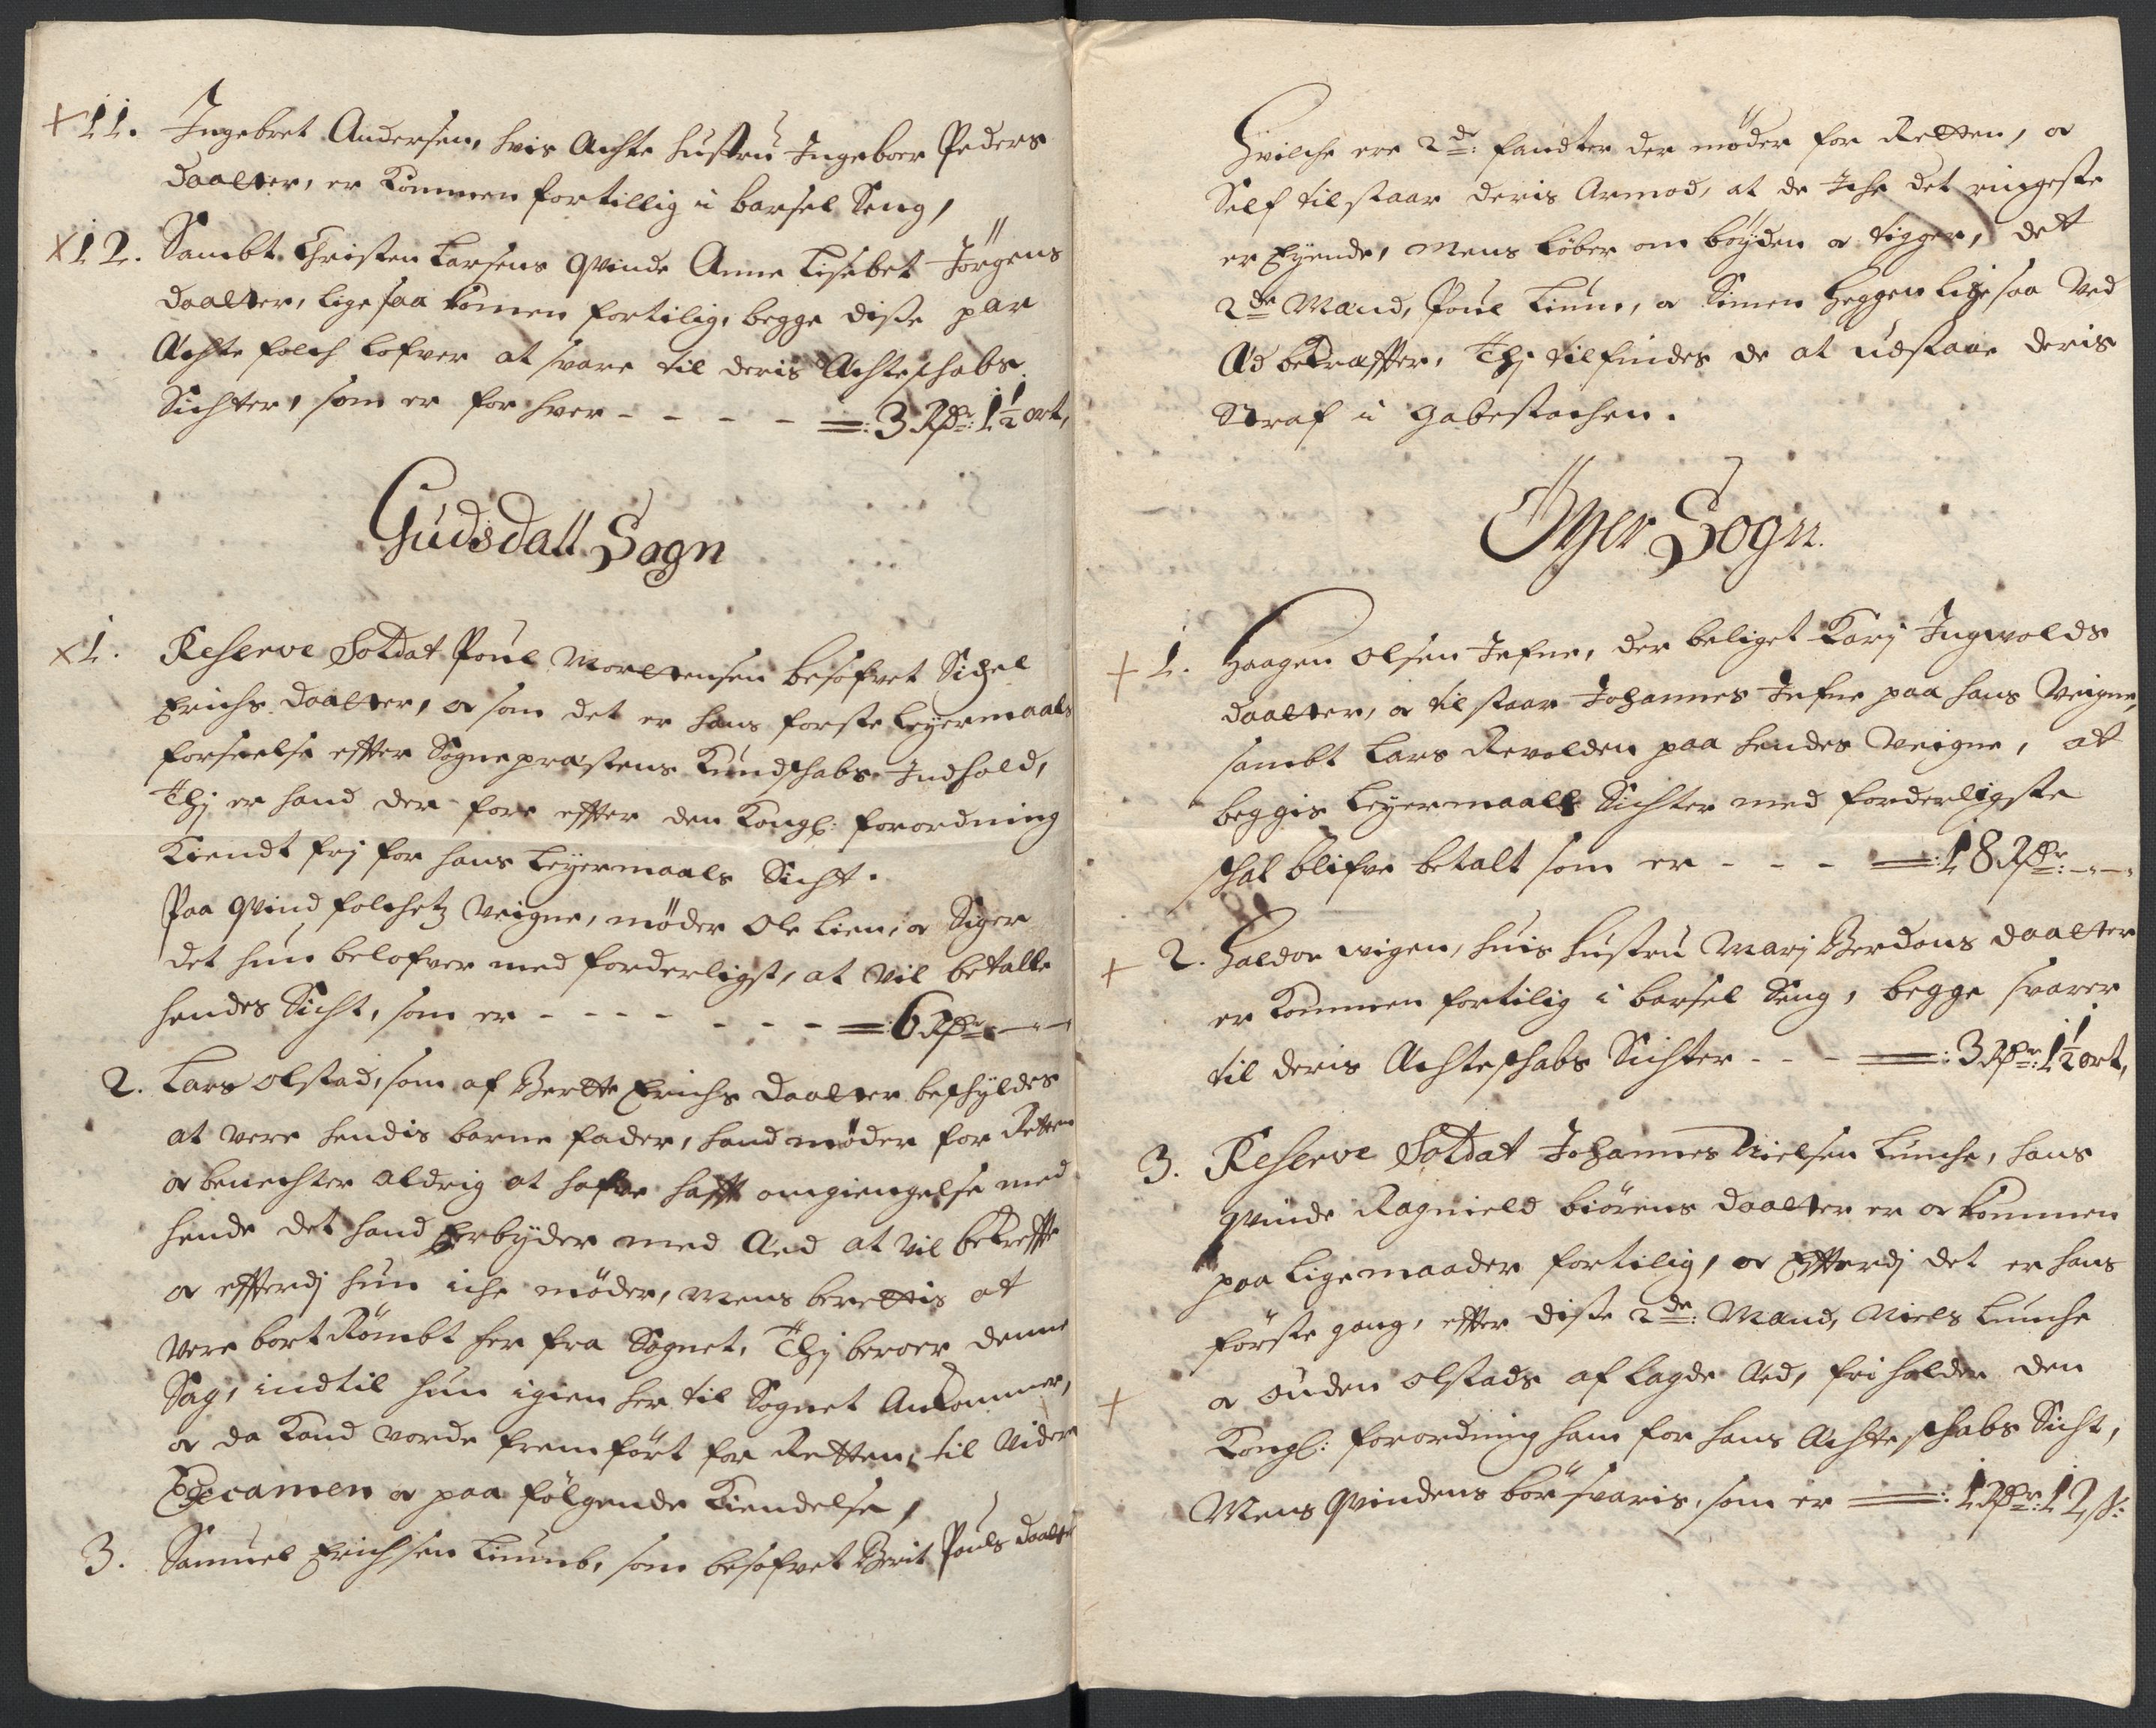 +11. Ingebret Andersen, hvis Achte hustru Ingeboer Peders
daatter, er kommen fortillig i barsel Seng,
x12. Sambt Christen Larsens Qvinde Anne Lisebet Jörgens
daatter, lige saa komen fortilig, begge disse par
Achte folch lofver at svare til deris Achteschabs
Sichter, som er for hver - - - - =:3 Rdr: 1½ ort,
Gudsdall Sogn
x1. Reserve Soldat Poul Mortensen besofvet Sidzel
Erichs daatter, og som det er hans første Leyermaals
forseelse effter Sogneprestens Kundschabs Indhold,
Thj er hand der fore effter den Kongl: forordning
Kiendt frj for hans Leyermaals Sicht.
Paa qvind folchetz Veigne, möder Ole Lien, og Siger
det hun belofver med forderligst, at vil betalle
hendes Sicht, som er - - - - - - - =6 Rdr:
2. Lars Olstad, som af Berthe Erichs daatter beschyldes
at vere hendis barne fader, hand möder for Retten
og benechter aldrig at hafve hafft omgiengelse med
hende det hand Erbyder med Aed at vil bekreffte
og effterdj hun iche möder, mens berettis at
vere bort Römbt her fra Sognet, Thj beroer denne
Sag, indtil hun igien her til Sognet Ankommer,
og da Kand vorde fremfört for Retten, til Videre
Excamen og paa fölgende Kiendelse,
3. Samuel Erichsen Liumb, som besofvet Berit Pouls daatter
Hvilche ere 2de: fandter der möder for Retten, og
Self tilstaar deris Armod, at de Iche det ringeste
er Eyende, mens löber om böyden og tigger, det
2de Mænd, Poul Lium, og Simen Heggen ligesaa Ved
Æd bekreffter, Thj tilfindes de at udstaae deris
Straf i gabestochen.
Öyer Sogn.
+ 1. Haagen Olsen Jefne, der beliget Karj Ingvolds
daatter, og tilstaar Johannes Jefne paa hans Veigne,
sambt Lars Revolden paa hendes Veigne, at
beggis Leyermaalls Sichter med forderligste
schal blifve betalt som er - - - =:18 Rdr:
+ 2. Haldor wigen, huis hustru Marj Berdons daatter
er kommen fortilig i barsel Seng, begge svarer
til deris Achteschabs Sichter - - - =:3 Rdr: 1½ ort,
3. Reserve Soldat Johannes Nielsen Lunche, hans
qvinde Ragnield biörens daatter er og kommen
paa lige maader fortilig, og Effterdj det er hans
förste gang, effter disse 2de: Mænd, Niels Lunche
+ og Ouden Olstads aflagde Aed, fri holder den
Kongl: forordning ham for hans Achteschabs Sicht,
Mens Qvindens bör svaris, som er =: 1 Rdr: 12 s: